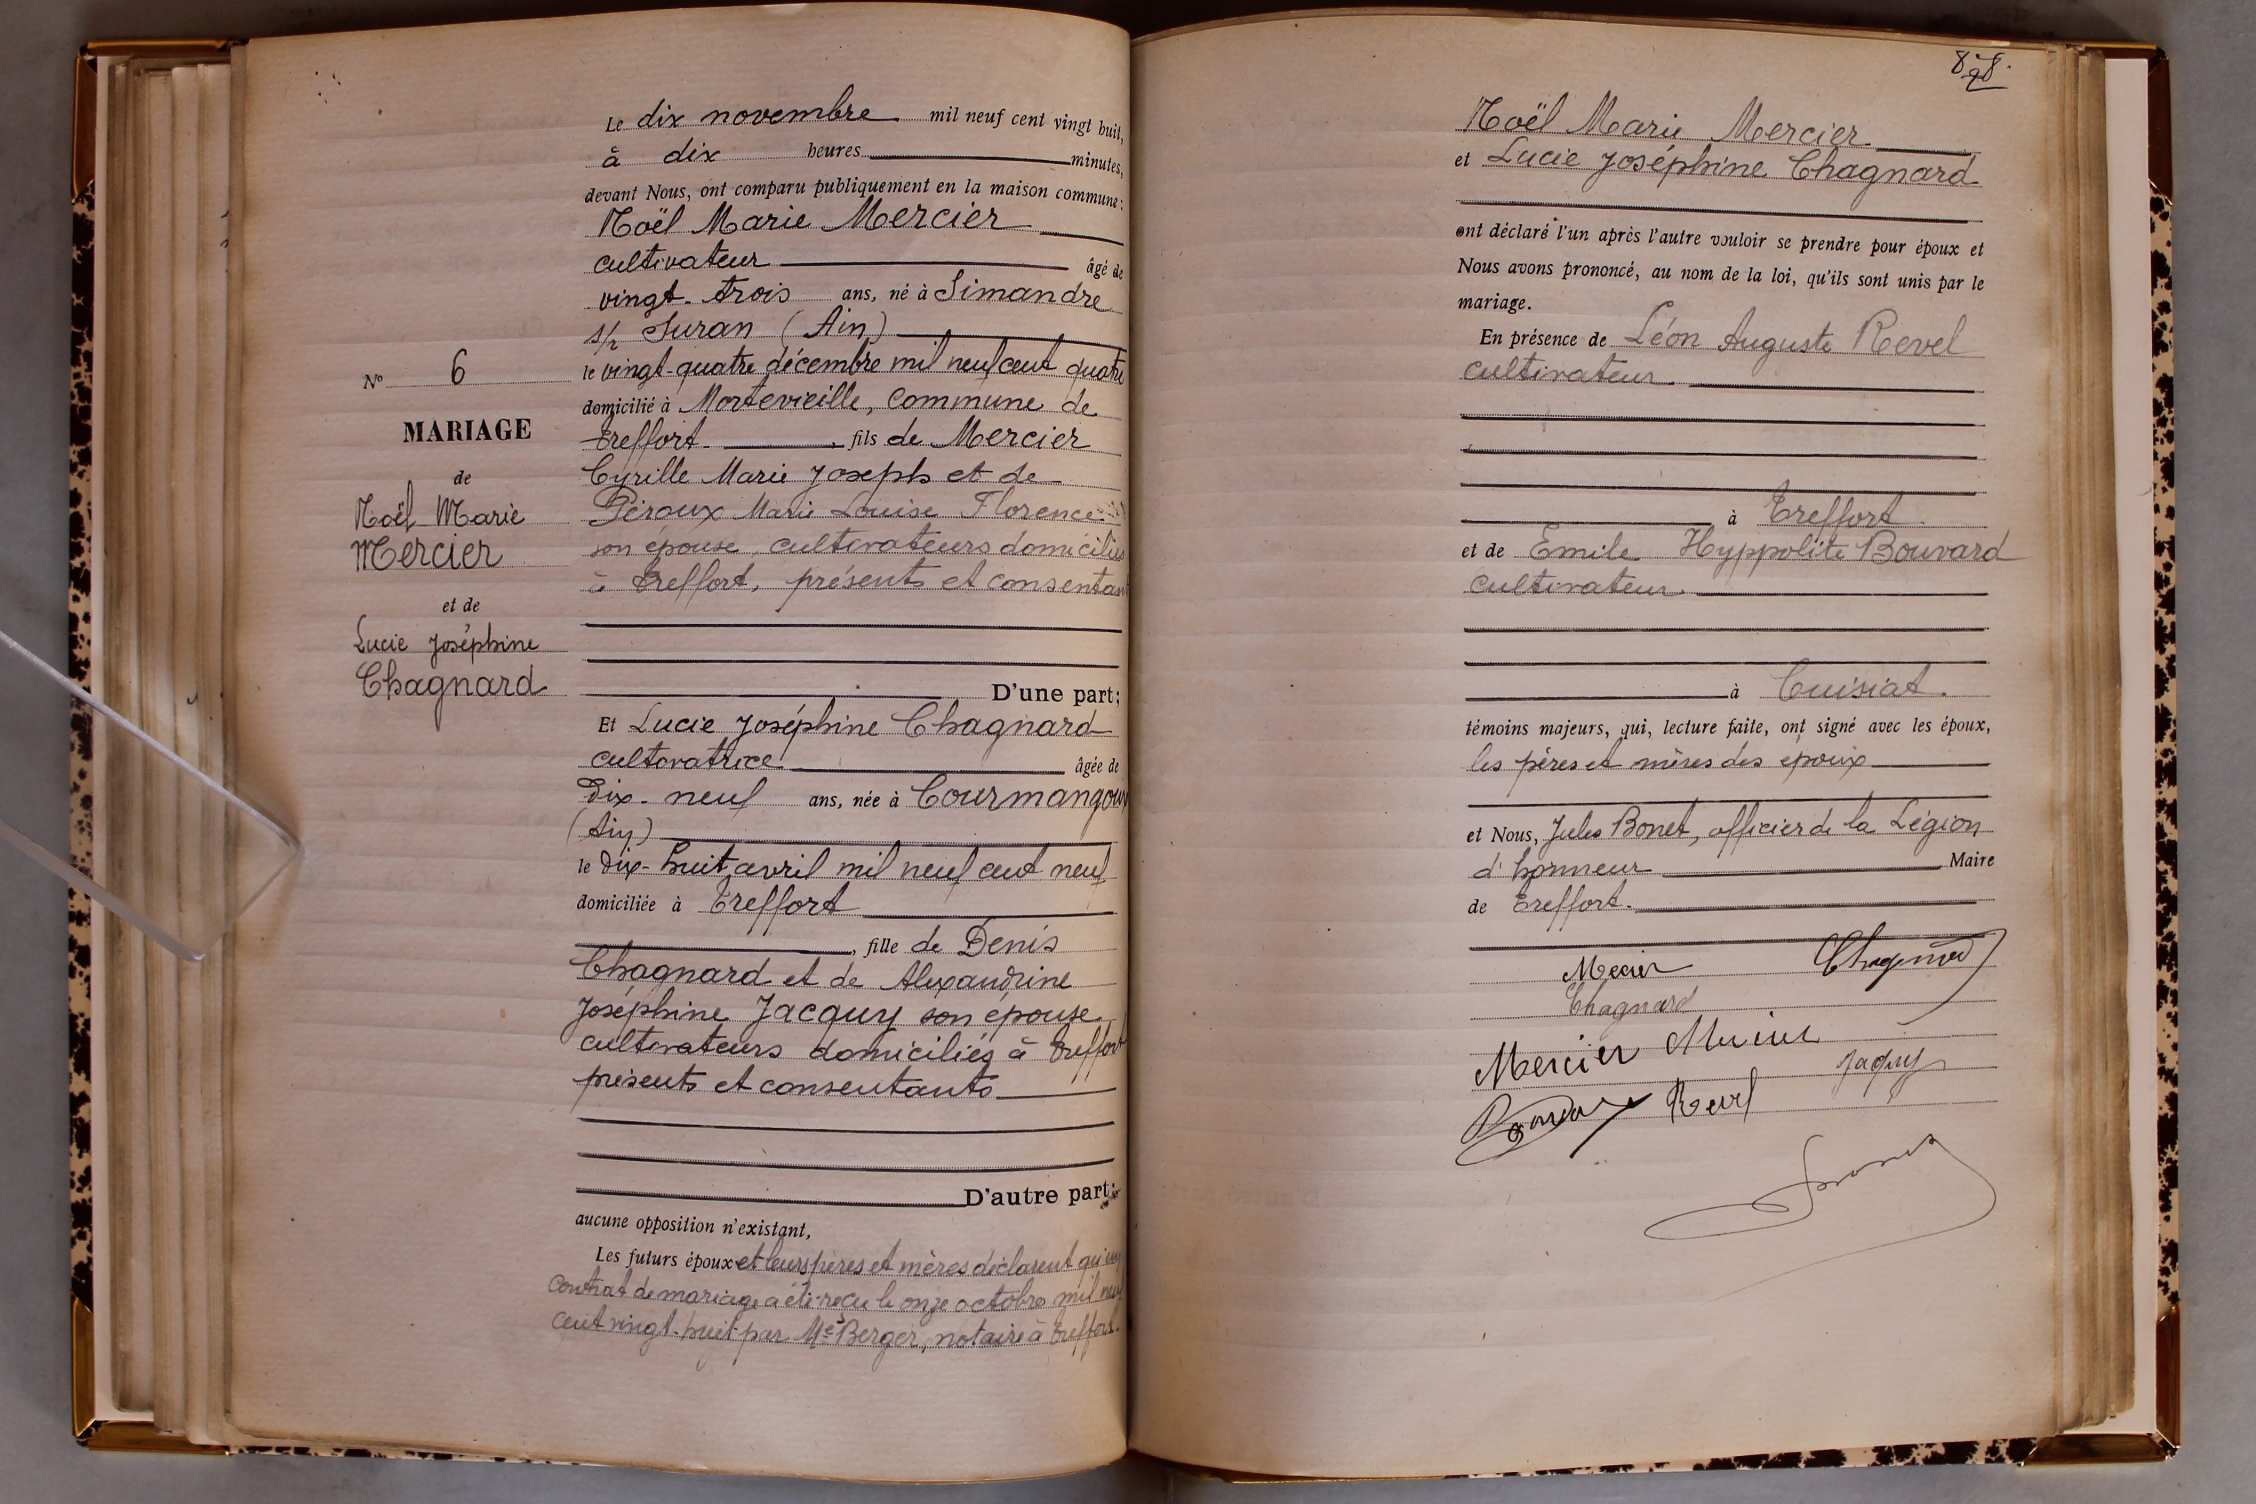 Le dix novembre mil neuf cent vingt huit,
à dix heures minutes,
devant Nous, ont comparu publiquement en la maison commune :
Noël Marie Mercier
cultivateur âgé de
vingt-trois ans, né à Simandre
s/r Suran (Ain)
le vingt-quatre décembre mil neuf cent quatre
domicilié à Mortevieille, commune de
Treffort, fils de Mercier
Cyrille Marie Joseph et de
Péroux Marie Louise Florence
son épouse, cultivateurs domiciliés
à Treffort, présents et consentants
D'une part;
Et Lucie Joséphine Chagnard
cultivatrice âgée de
dix-neuf ans, née à Courmangoux
(Ain)
le dix-huit avril mil neuf cent neuf
domiciliée à Treffort
, fille de Denis
Chagnard et de Alexandrine
Joséphine Jacquy son épouse
cultivateurs domiciliés à Treffort
présents et consentants
D'autre part;
aucune opposition n'existant,
Les futurs époux et leurs pères et mères déclarent qu'un
contrat de mariage a été reçu le onze octobre mil neuf
cent vingt-huit par Me Berger, notaire à Treffort.
No 6
MARIAGE
de
Noël Marie
Mercier
et de
Lucie Joséphine
Chagnard
Noël Marie Mercier
et Lucie Joséphine Chagnard
ont déclaré l'un après l'autre vouloir se prendre pour époux et
Nous avons prononcé, au nom de la loi, qu'ils sont unis par le
mariage.
En présence de Léon Auguste Revel
cultivateur
à Treffort
et de Emile Hyppolite Bouvard
cultivateur
à Cuisiat.
témoins majeurs, qui, lecture faite, ont signé avec les époux,
les pères et mères des époux
et Nous, Jules Bonet, officier de la Légion
d'honneur Maire
de Treffort.
Mercier Chagnard
Chagnard
Mercier Mercier
Jaquy
Revel